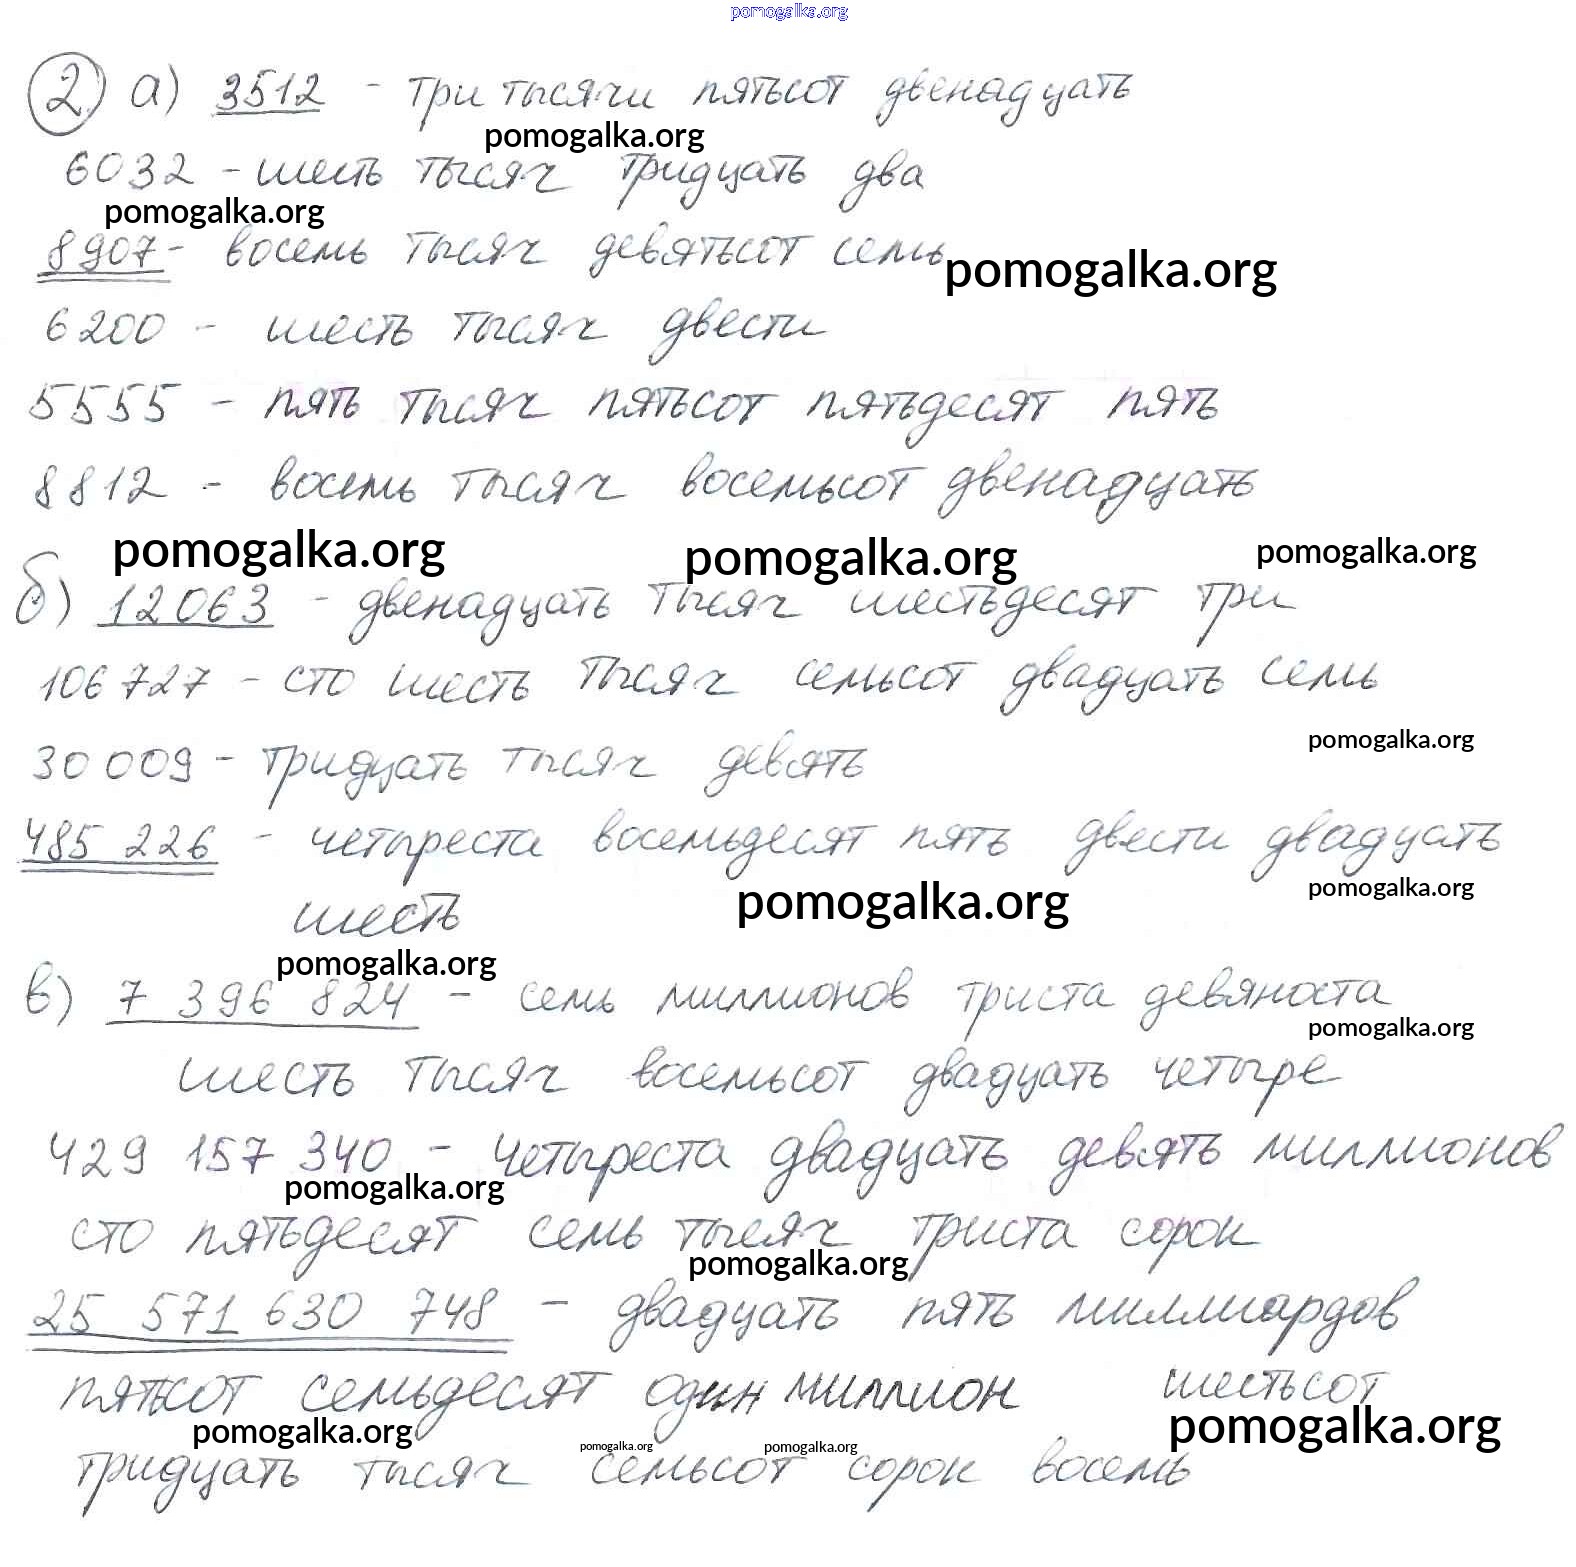 pomogalka.org
2) а) 3512 - три тысячи пятьсот двенадцать
pomogalka.org
6032 - шесть тысяч тридцать два
pomogalka.org
8907 - восемь тысяч девятьсот семь
pomogalka.org
6200 - шесть тысяч двести
5555 - пять тысяч пятьсот пятьдесят пять
8812 - восемь тысяч восемьсот двенадцать
pomogalka.org pomogalka.org pomogalka.org
б) 12063 - двенадцать тысяч шестьдесят три
106727 - сто шесть тысяч семьсот двадцать семь
pomogalka.org
30009 - тридцать тысяч девять
485 226 - четыреста восемьдесят пять двести двадцать
pomogalka.org pomogalka.org
шесть
pomogalka.org
в) 7 396 824 - семь миллионов триста девяноста
pomogalka.org
шесть тысяч восемьсот двадцать четыре
429 157 340 - четыреста двадцать девять миллионов
pomogalka.org
сто пятьдесят семь тысяч триста сорок
pomogalka.org
25 571 630 748 - двадцать пять миллиардов
пятьсот семьдесят один миллион шестьсот
pomogalka.org pomogalka.org pomogalka.org pomogalka.org
тридцать тысяч семьсот сорок восемь